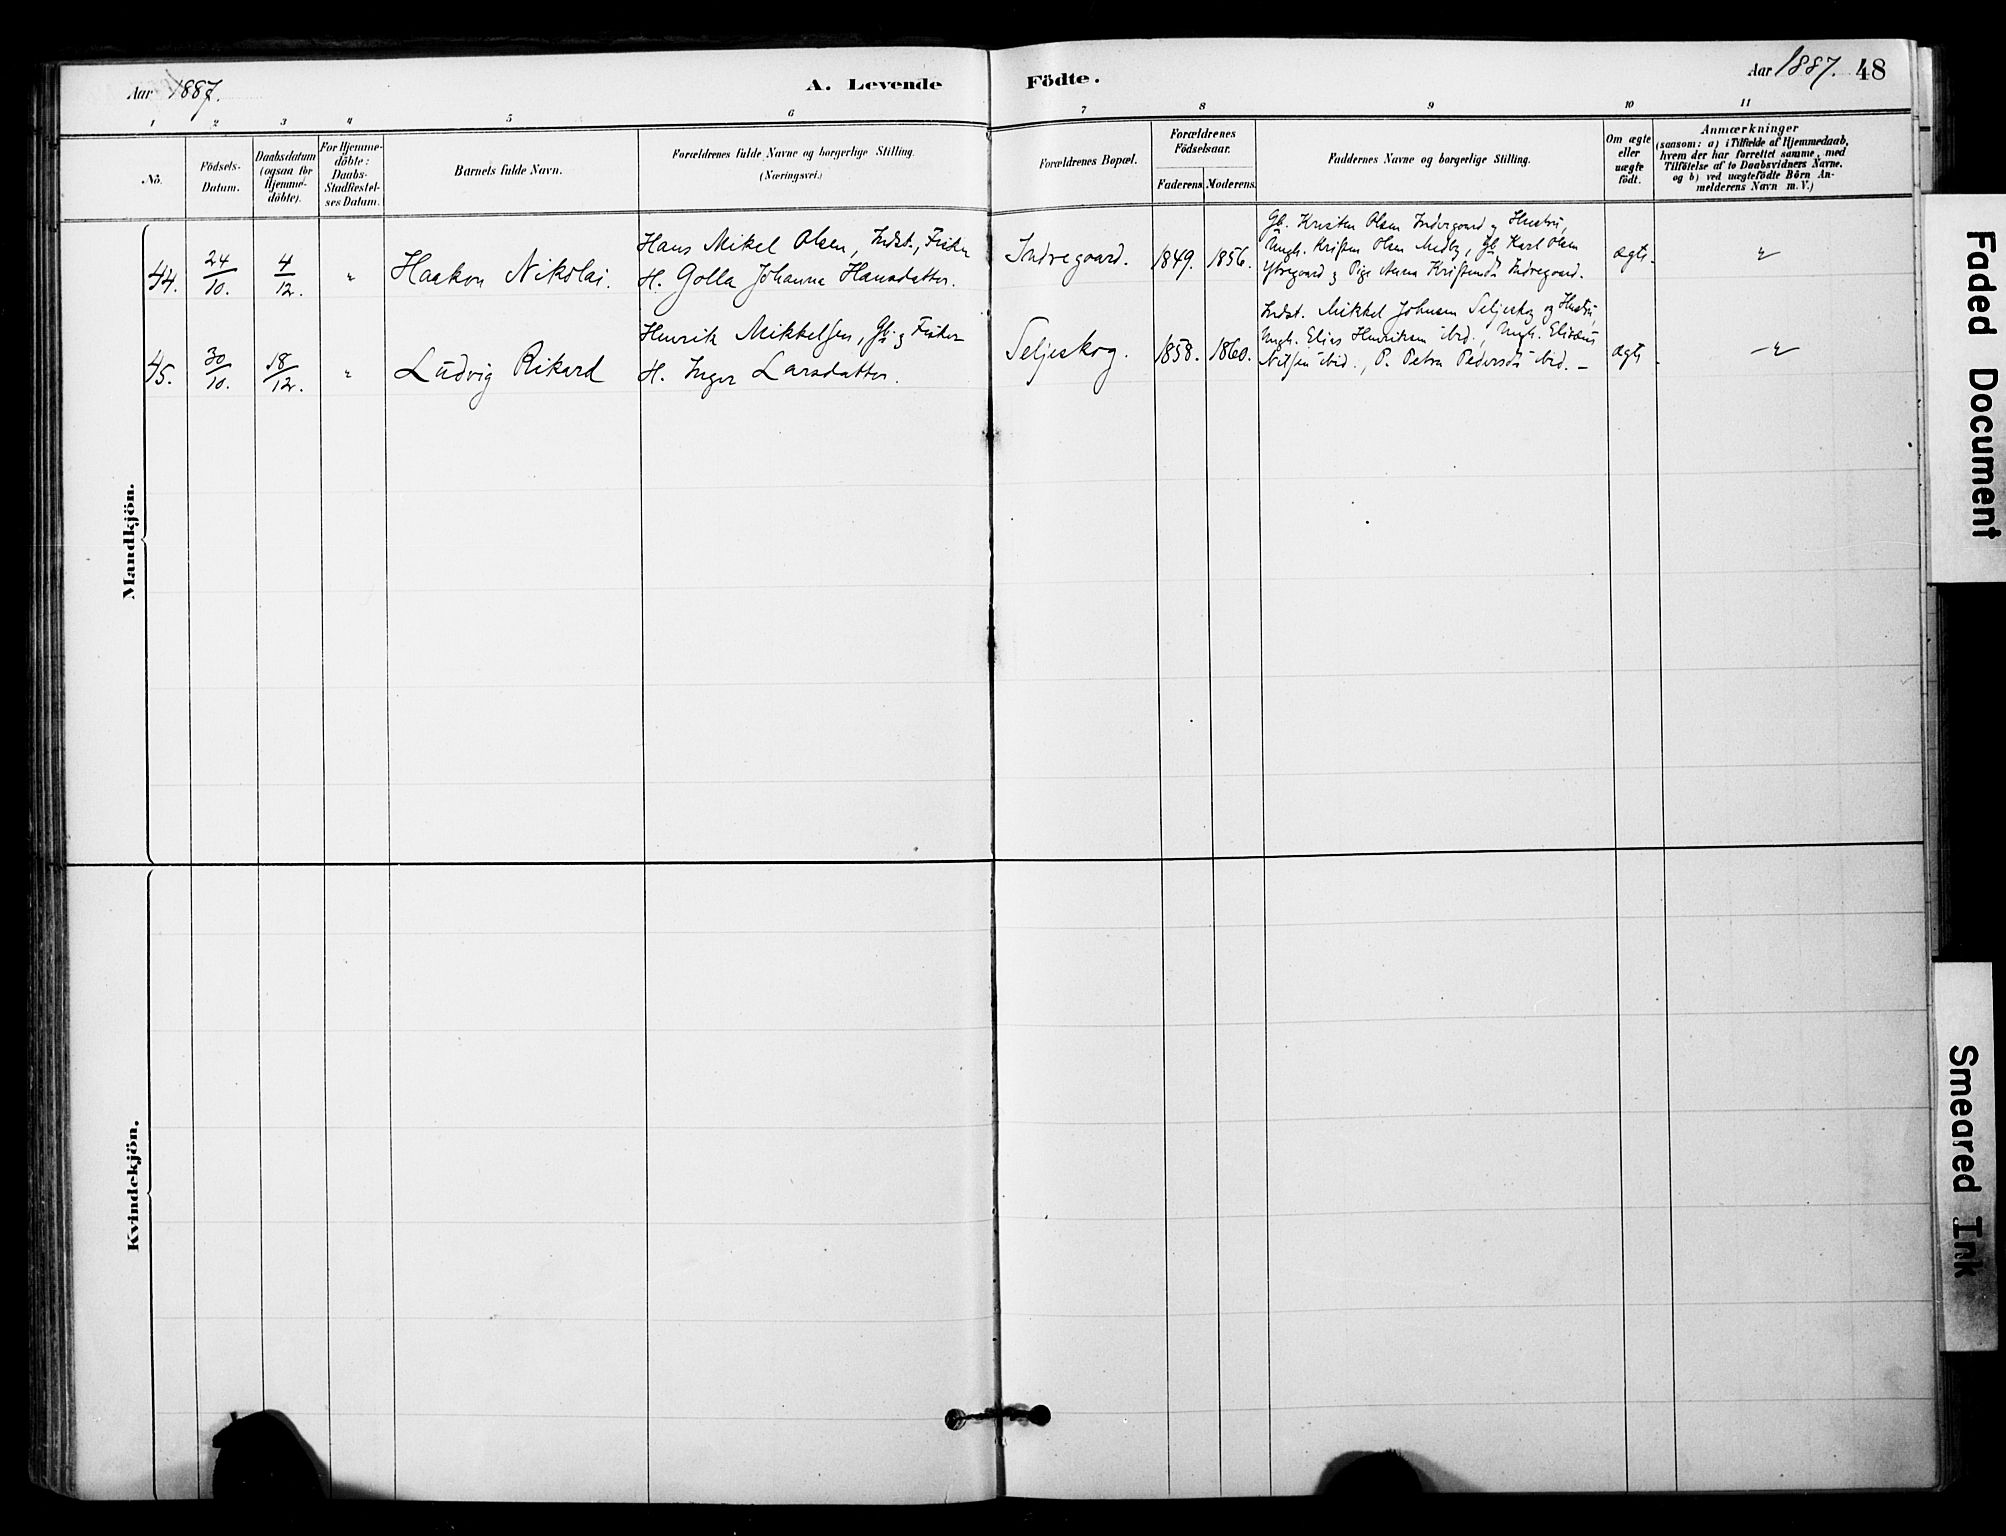 Aar 1887.
A. Levende Födte.
Aar 1887. 48
1 2 3 4 5 6 7 8 9 10 11
No.
Födsels-
Datum.
Daabsdatum
(ogsaa for
Hjemme-
döbte).
For Hjemme-
döbte:
Daabs-
Stadfæstel-
ses Datum.
Barnets fulde Navn.
Forældrenes fulde Navne og borgerlige Stilling.
(Næringsvei.)
Forældrenes Bopæl.
Forældrenes
Födselsaar.
Faderens Moderens.
Faddernes Navne og borgerlige Stilling.
Om ægte
eller
uægte
födt.
Anmærkninger
(saasom: a) i Tilfælde af Hjemmedaab,
hvem der har forrettet samme, med
Tilföielse af to Daabsvidners Navne.
og b) ved uægtefödte Börn An-
melderens Navn m. V.)
Mandkjön.
44.
24/10.
4/12.
"
Haakon Nikolai.
Hans Mikel Olsen, Indst., Fisker
H. Golla Johanna Hansdatter.
Indregaard.
1849. 1856.
Gb. Kristen Olsen Indregaard og Hustru,
Ungk. Kristen Olsen Medby, Gb. Karl Olsen
Ytregaard og Pige Anna Kristensdt Indregaard.
ægte.
"
45.
30/10.
18/12.
"
Ludvig Rikard
Henrik Mikkelsen, Gb. og Fisker
H. Inger Larsdatter.
Seljeskog.
1858. 1860.
Indst. Mikkel Johnsen Seljeskog og Hustru,
Ungk. Elias Henriksen ibid., Ungk. Elisæus
Nilsen ibid., P. Petra Pedersdt ibid. –
ægte
–"–
Kvindekjön.
Faded Document
Smeared Ink